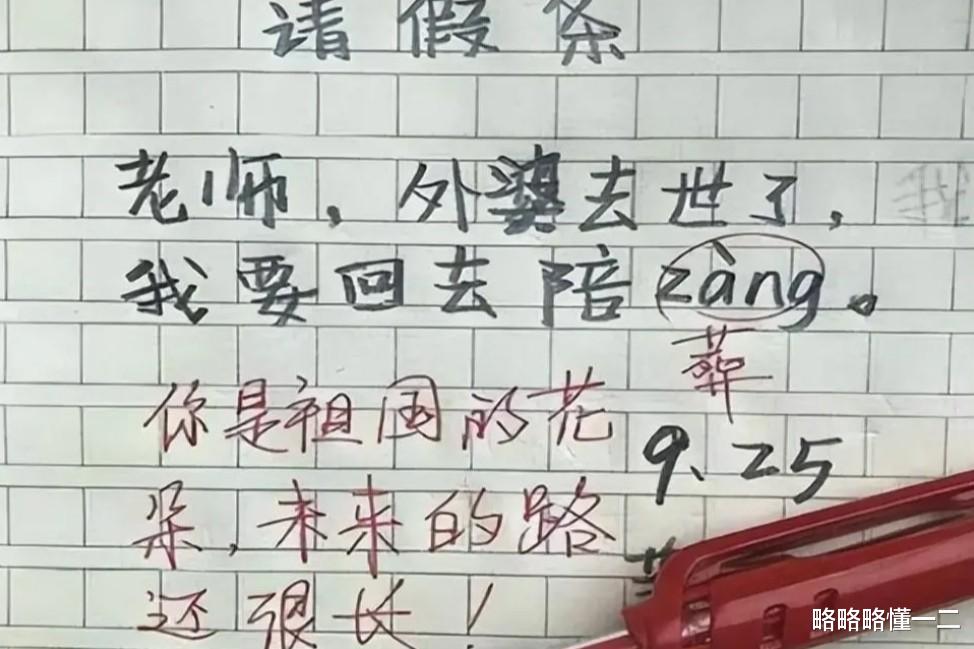 请假条
老师，外婆去世了，
我要回去陪zàng。
葬
你是祖国的花
9.25
朵，未来的路
还很长！
略略略懂一二